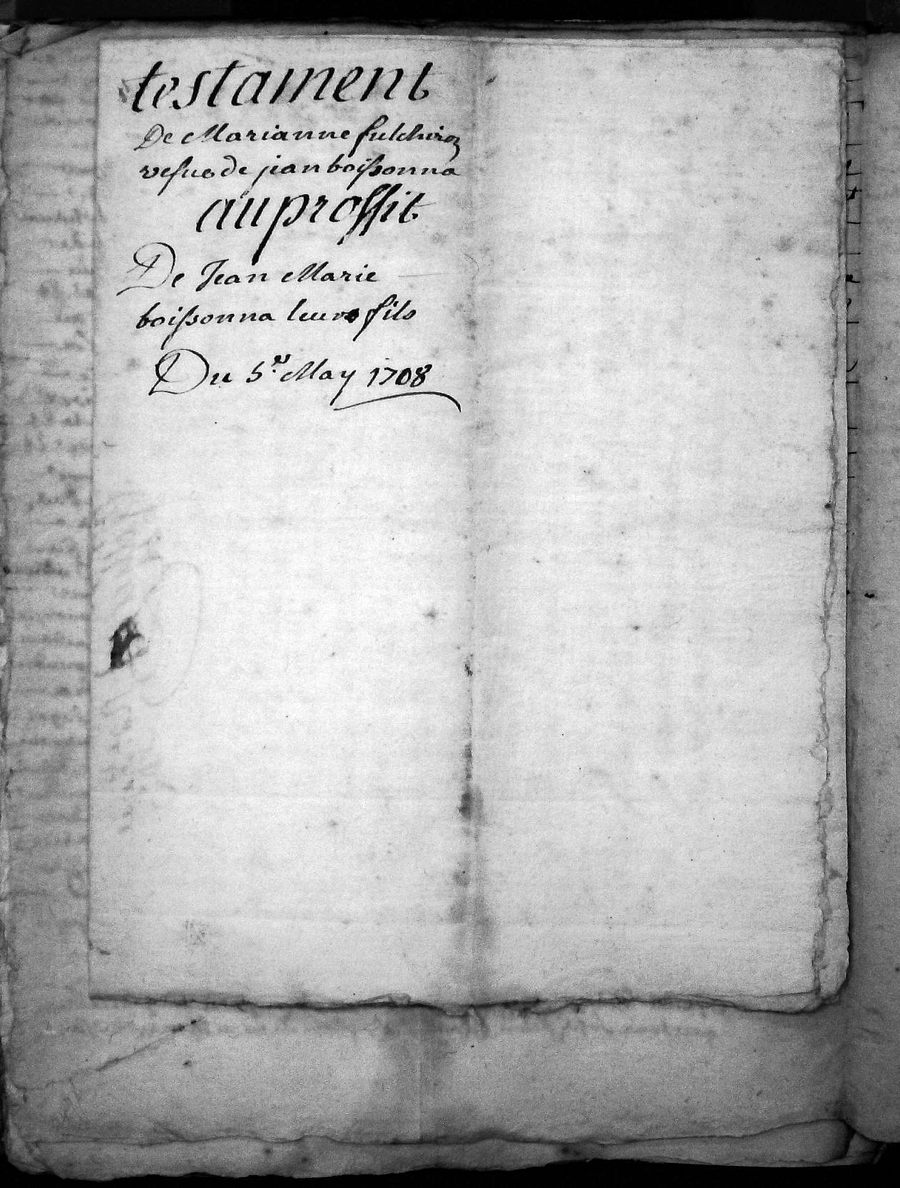 testament
De Marianne fulchiron
vefue de jean boissonna
au proffit
De Jean Marie
boissonna leur fils
Du 5.e May 1708